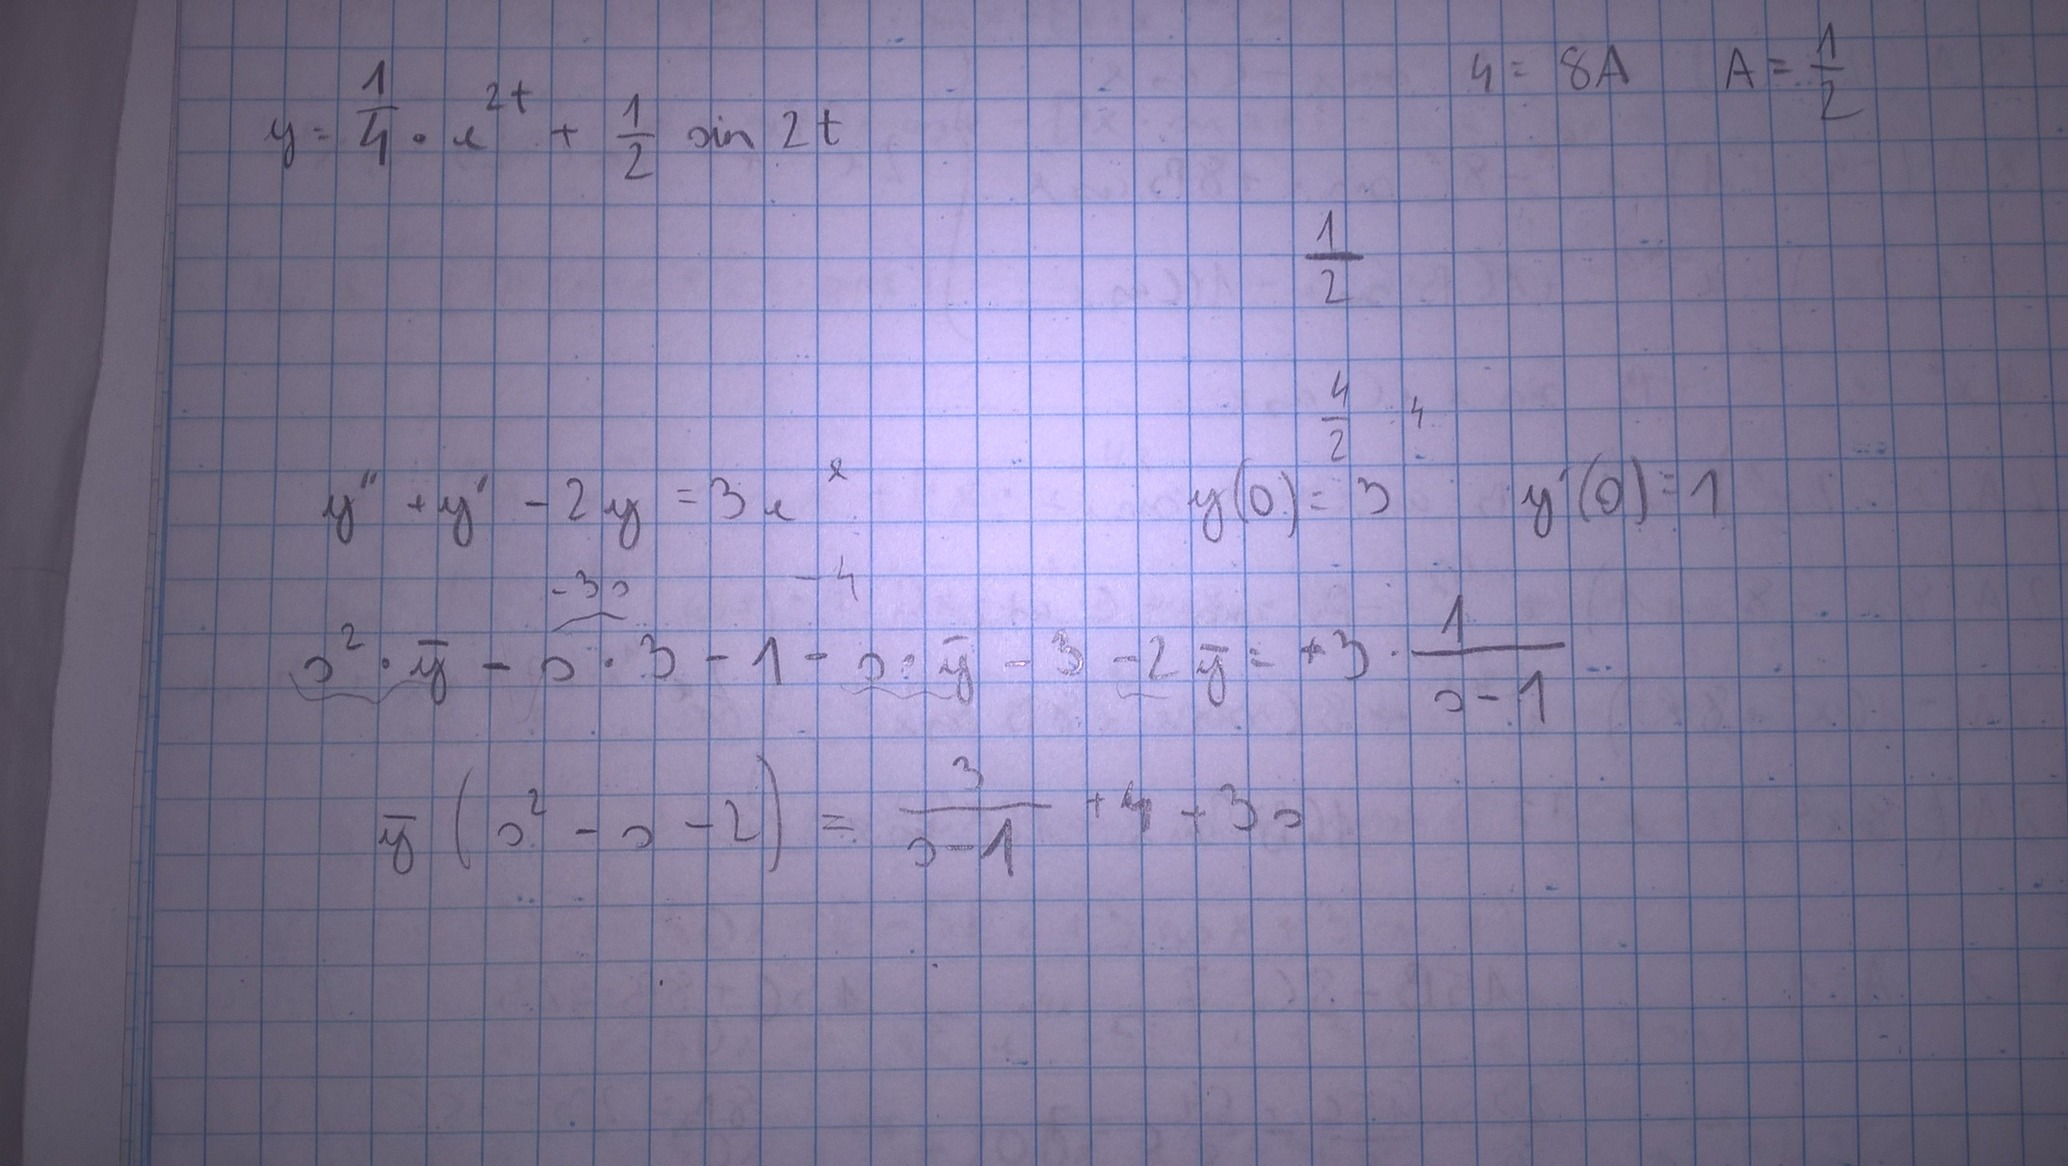 4 = 8A A = 1/2
y = 1/4 · e^2t + 1/2 sin 2t
1/2
4/2 4
y'' + y' - 2y = 3e^x y(0) = 3 y'(0) = 1
-3s -4
s^2 · ȳ - s · 3 - 1 - s · ȳ - 3 - 2ȳ = +3 · 1/(s-1)
ȳ (s^2 - s - 2) = 3/(s-1) + 4 + 3s